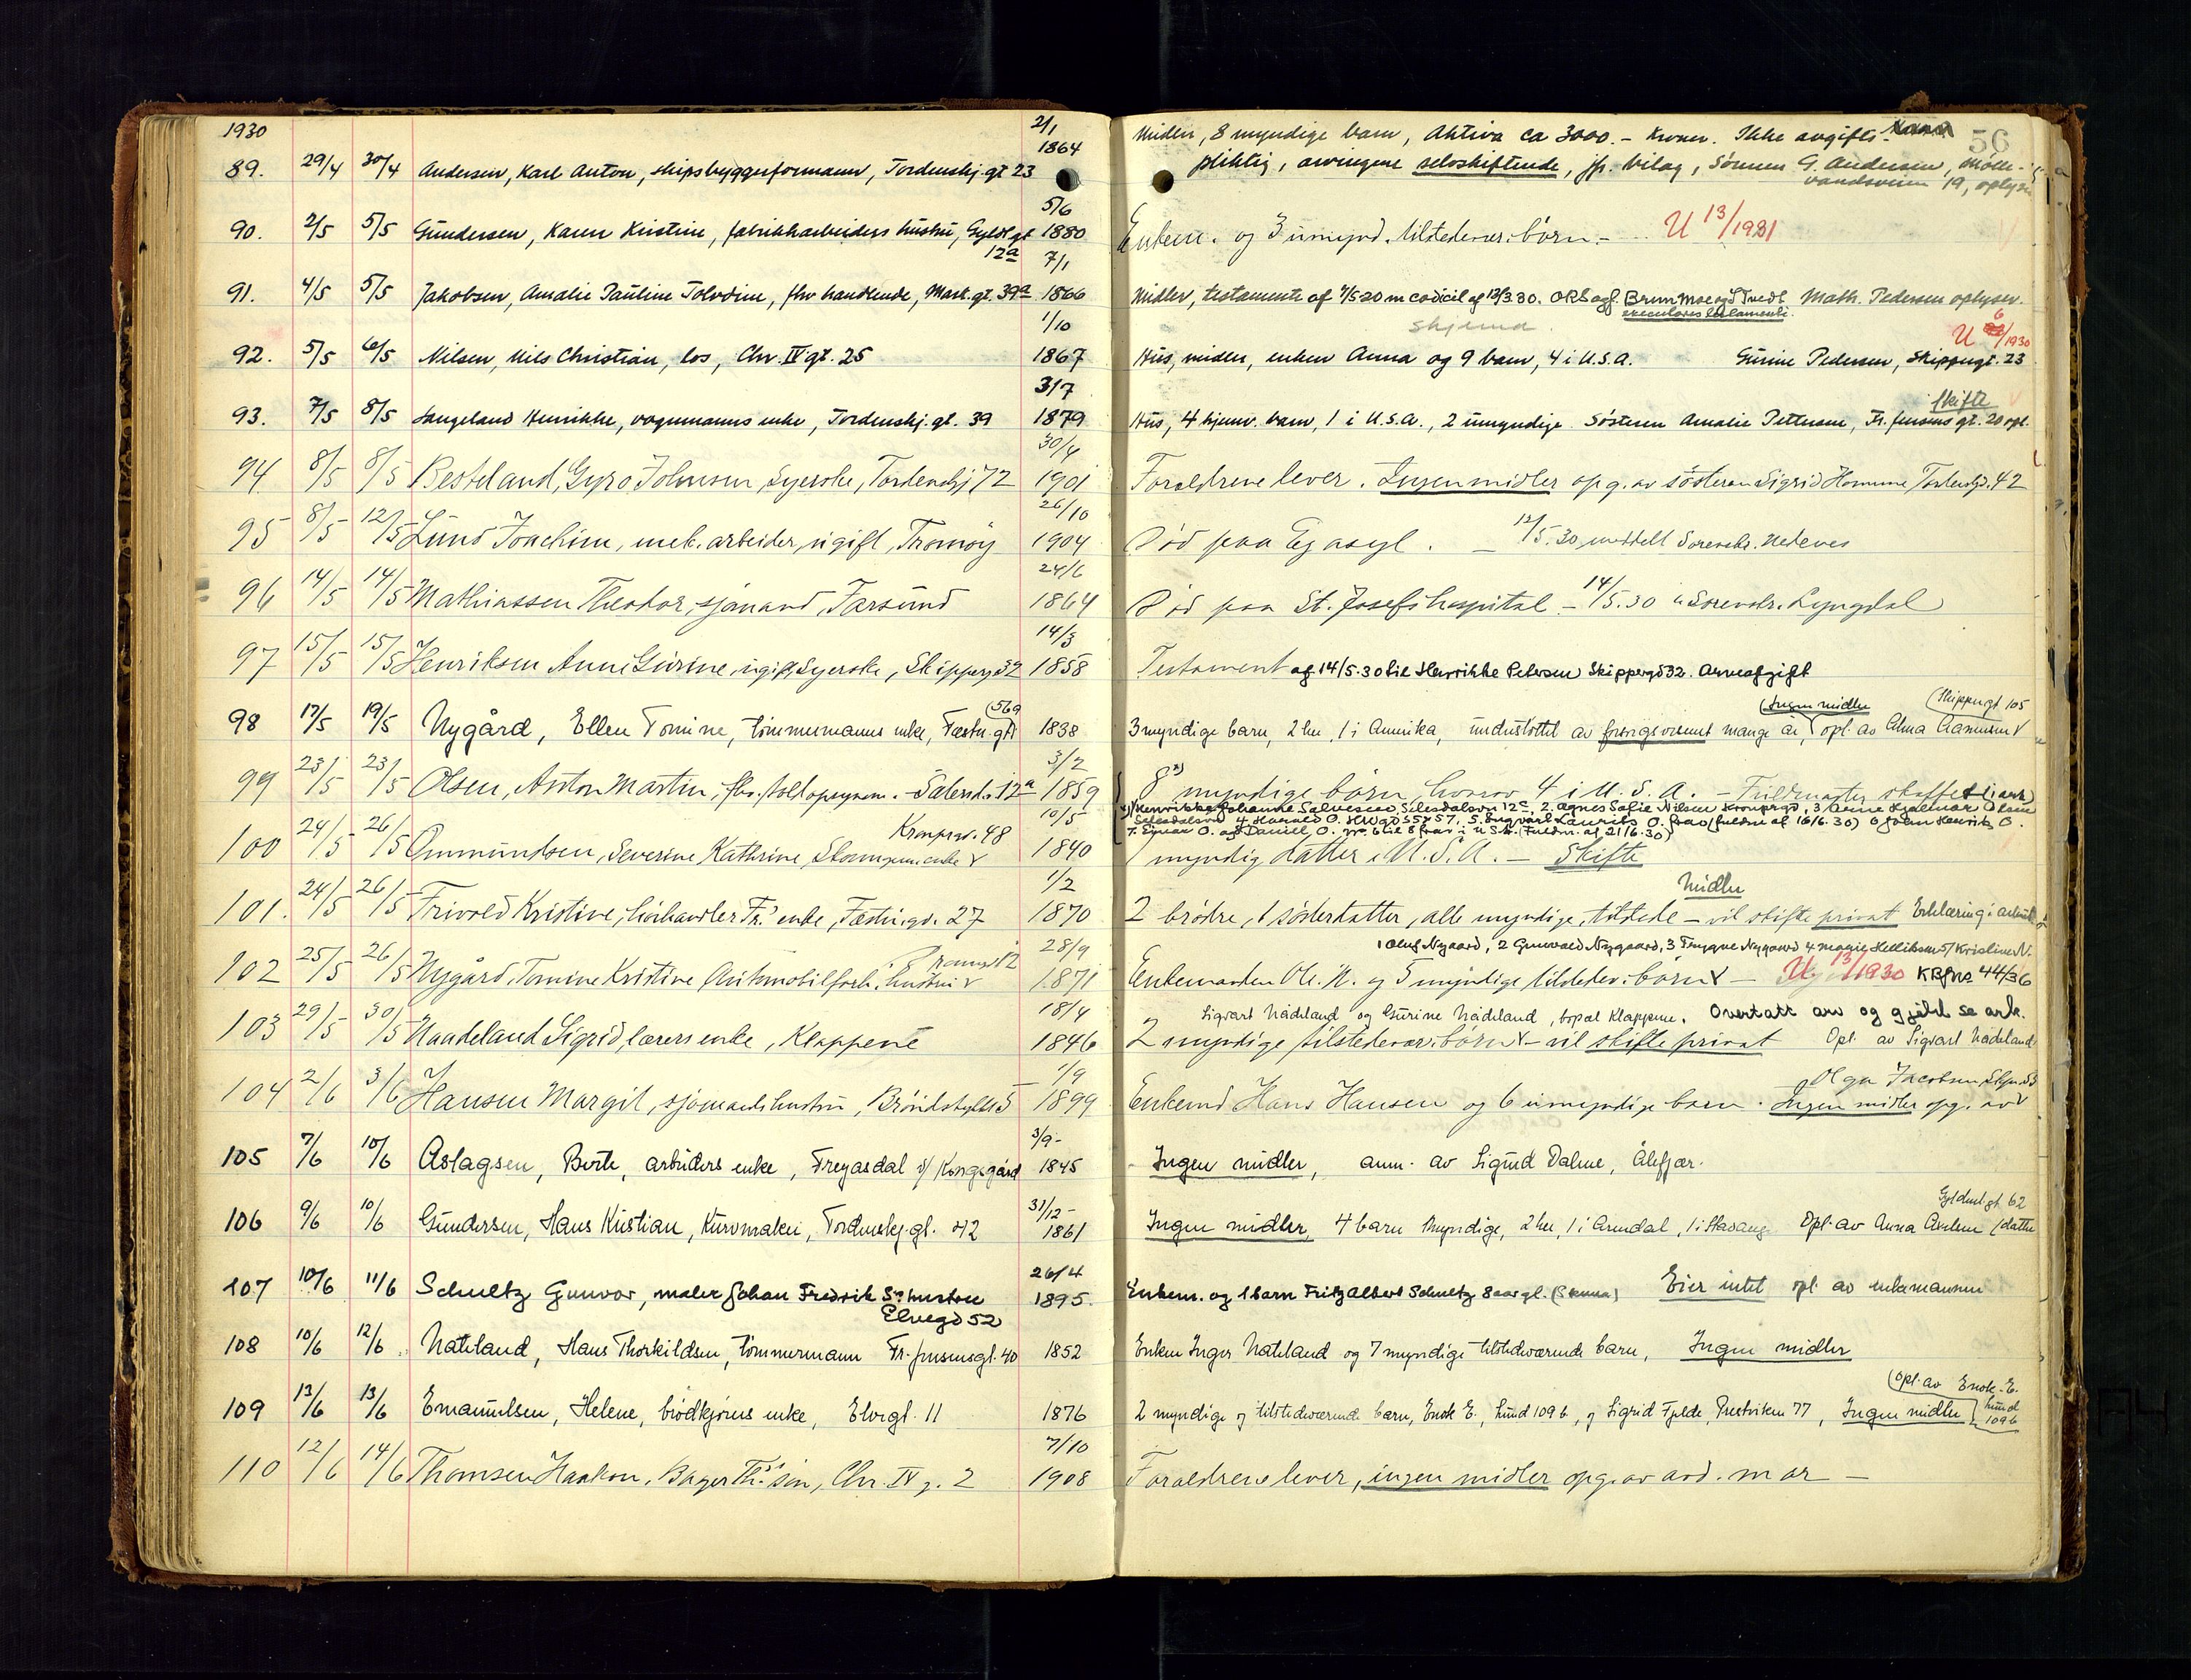 1930
2/1
1864
Midler, 8 myndige barn, Aktiva ca 3000.- Kroner. Ikke avgifts-
56
89. 29/4 30/4 Andersen, Karl Anton, skipsbyggerformann, Tordenskj.gt 23
pliktig, arvingene selvskiftende, jfr. bilag, Sönnen G. Andersen, Mølle-
vandsveien 19, oplyser
5/6
90. 2/5 5/5 Gundersen, Karen Kristine, fabrikkarbeiders hustru, Gyldl.gt 1880
12a
Enkem. og 3 umynd. tilstedevær. börn.- U 13/1931
7/1
91. 4/5 5/5 Jakobsen, Amalie Pauline Tolvdine, fhv handlende, Mark.gt. 39a 1866
Midler, testamente af 7/5 20 m codicil af 12/3 30. Math. Pedersen oplyser.
executores testamenti.
skjema
1/10
U 6/1930
92. 5/5 6/5 Nilsen, Nils Christian, los, Chr. IV gt. 25 1867
Hus, midler, enken Anna og 9 barn, 4 i U.S.A. Gurine Pedersen, Skippergt. 23
3/7
skifte
93. 7/5 8/5 Langeland Henrikke, vognmanns enke, Tordenskj. gt. 39 1879
Hus, 4 hjemv. barn, 1 i U.S.A., 2 umyndige Søsteren Amalie Pettersen, Fr. Jensens gt. 20 opl.
30/4
94 8/5 8/5 Besteland, Gyro Johnsen, Syerske, Tordenskj 72 1901
Foreldrene lever. Ingen midler opg. av søsteren Sigrid Homme Tordenskj. 42
26/10
95 8/5 12/5 Lund Joachim, mek. arbeider, ugift, Tromöy 1904
Død paa Eg asyl. - 12/5.30 meddelt Sorenskr. Nedenes
24/6
96 14/5 14/5 Mathiassen Theodor, sjömand, Farsund 1864
Død paa St. Josefs hospital - 14/5.30 " Sorenskr. Lyngdal
14/3
97 15/5 15/5 Henriksen Anne Gurine, ugift, Syerske, Skipperg 32 1858
Testament af 14/5.30 til Henrikke Petersen Skippergd 32. Arveafgift
(56a
(Ingen midler (Skippergt 105
98 17/5 19/5 Nygård, Ellen Tomine, tömmermanns enke, Festn.gt 1838
3 myndige barn, 2 her, 1 i Amerika, understøttet av forsorgsvesenet mange år, opl. av Alma Aamunsen
3/2
99 23/5 23/5 Olsen, Anton Martin, fhv. toldopsynsm. - Sølesd. 12a 1859
8 myndige börn, hvorav 4 i U.S.A. - Fuldmagter skaffes
Henrikke Johanne Salvesen Sølesdalsvn 12a, 2. Agnes Sofie Nilsen Kronprgd, 3 Arne Hjalmar Olsen
Sølesdalsvn 4 Harald O. 5. Ingvart Laurits O. frav (fuldm af 16/6.30) 6 John Henrik O.
7. Einar O. og Daniel O. nr. 6 til 8 frav i U.S.A. (Fuldm. af 21/6.30)
10/5
Kronprgd. 48
100 24/5 26/5 Ommundsen, Severine Kathrine, enke 1840
1 myndig datter i U.S.A. - Skifte
1/2
Midler
101. 24/5 26/5 Frivold Kristine, Fr.'s enke, Festn.gd. 27 1870
2 brödre, 1 søsterdatter, alle myndige, tilstede - vil skifte privat Erklæring i arkivet
28/9
1 Oluf Nygaard, 2 Gunvald Nygaard, 3 Trygve Nygaard 4 Magie Hellikson 5/ Kristine N.
102 25/5 26/5 Nygård, Tomine Kristine Automobilforh. hustru 1871
Enkemanden Ole N. og 5 myndige tilstedev. börn - U 13/1930 44/36
18/4
Sigvart Nådeland og Gurine Nådeland, bopæl Klappene. Overtatt arv og gjeld se ark.
103 29/5 30/5 Naadeland Sigrid, lærers enke, Klappene 1846
2 myndige tilstedevær. börn - vil skifte privat Opl. av Sigvart Nådeland
1/9
Olga Jacobsen
104 2/6 3/6 Hansen Margit, sjömandshustru, Bröndstykket 5 1899
Enkemd Hans Hansen og 6 umyndige barn. Ingen midler opg. av
3/9-
105 7/6 10/6 Aslagsen, Berte, arbeiders enke, Freyasdal v/ Kongsgård 1845
Ingen midler, anm. av Sigurd Dalene, Ålefjær.
31/12-
Gyldenl.gt 62
106 9/6 10/6 Gundersen, Hans Kristian, Kurvmaker, Tordenskj.gt. 42 1861
Ingen midler, 4 barn myndige, 2 her, 1 i Arendal, 1 i Stavang. Opl. av Anna Axelsen (datter
26/4
107 10/6 11/6 Schultz Gunvor, maler Johan Fredrik S' hustru 1895.
Elvegd 52
Enkem. og 1 barn Fritz Albert Schultz 8 aar gl. Eier intet opl. av enkemannen
108 10/6 12/6 Nateland, Hans Thorkildsen, tömmermann Fr. Jensensgt. 40 1852
Enken Inger Nateland og 7 myndige tilstedeværende barn, Ingen midler
(opl. av Enok. E.
109 13/6 13/6 Emanuelsen, Helene, brödkjörers enke, Elvegt. 11 1876
2 myndige og tilstedeværende barn, Enok E., Lund 109 b, og Sigrid Fjelde, Prestviken 77, Ingen midler Lund
109 b
7/10
110 12/6 14/6 Thomsen Haakon, Bager Th.'s sön, Chr. IV g. 2 1908
Foreldrene lever, ingen midler opg. av avd. mor -